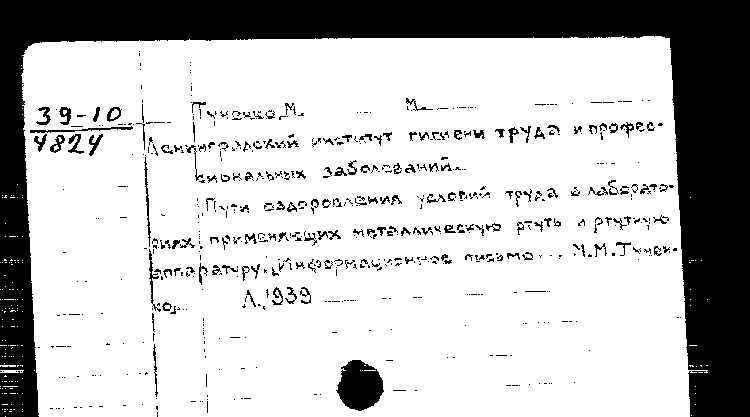 39-10
4824
Тученко, М. М.
Ленинградский институт гигиены труда и профес-
сиональных заболеваний.
Пути оздоровления условий труда в лаборато-
риях, применяющих металлическую ртуть и ртутную
аппаратуру. Информационное письмо... М.М.Тучен-
ко. Л., 1939